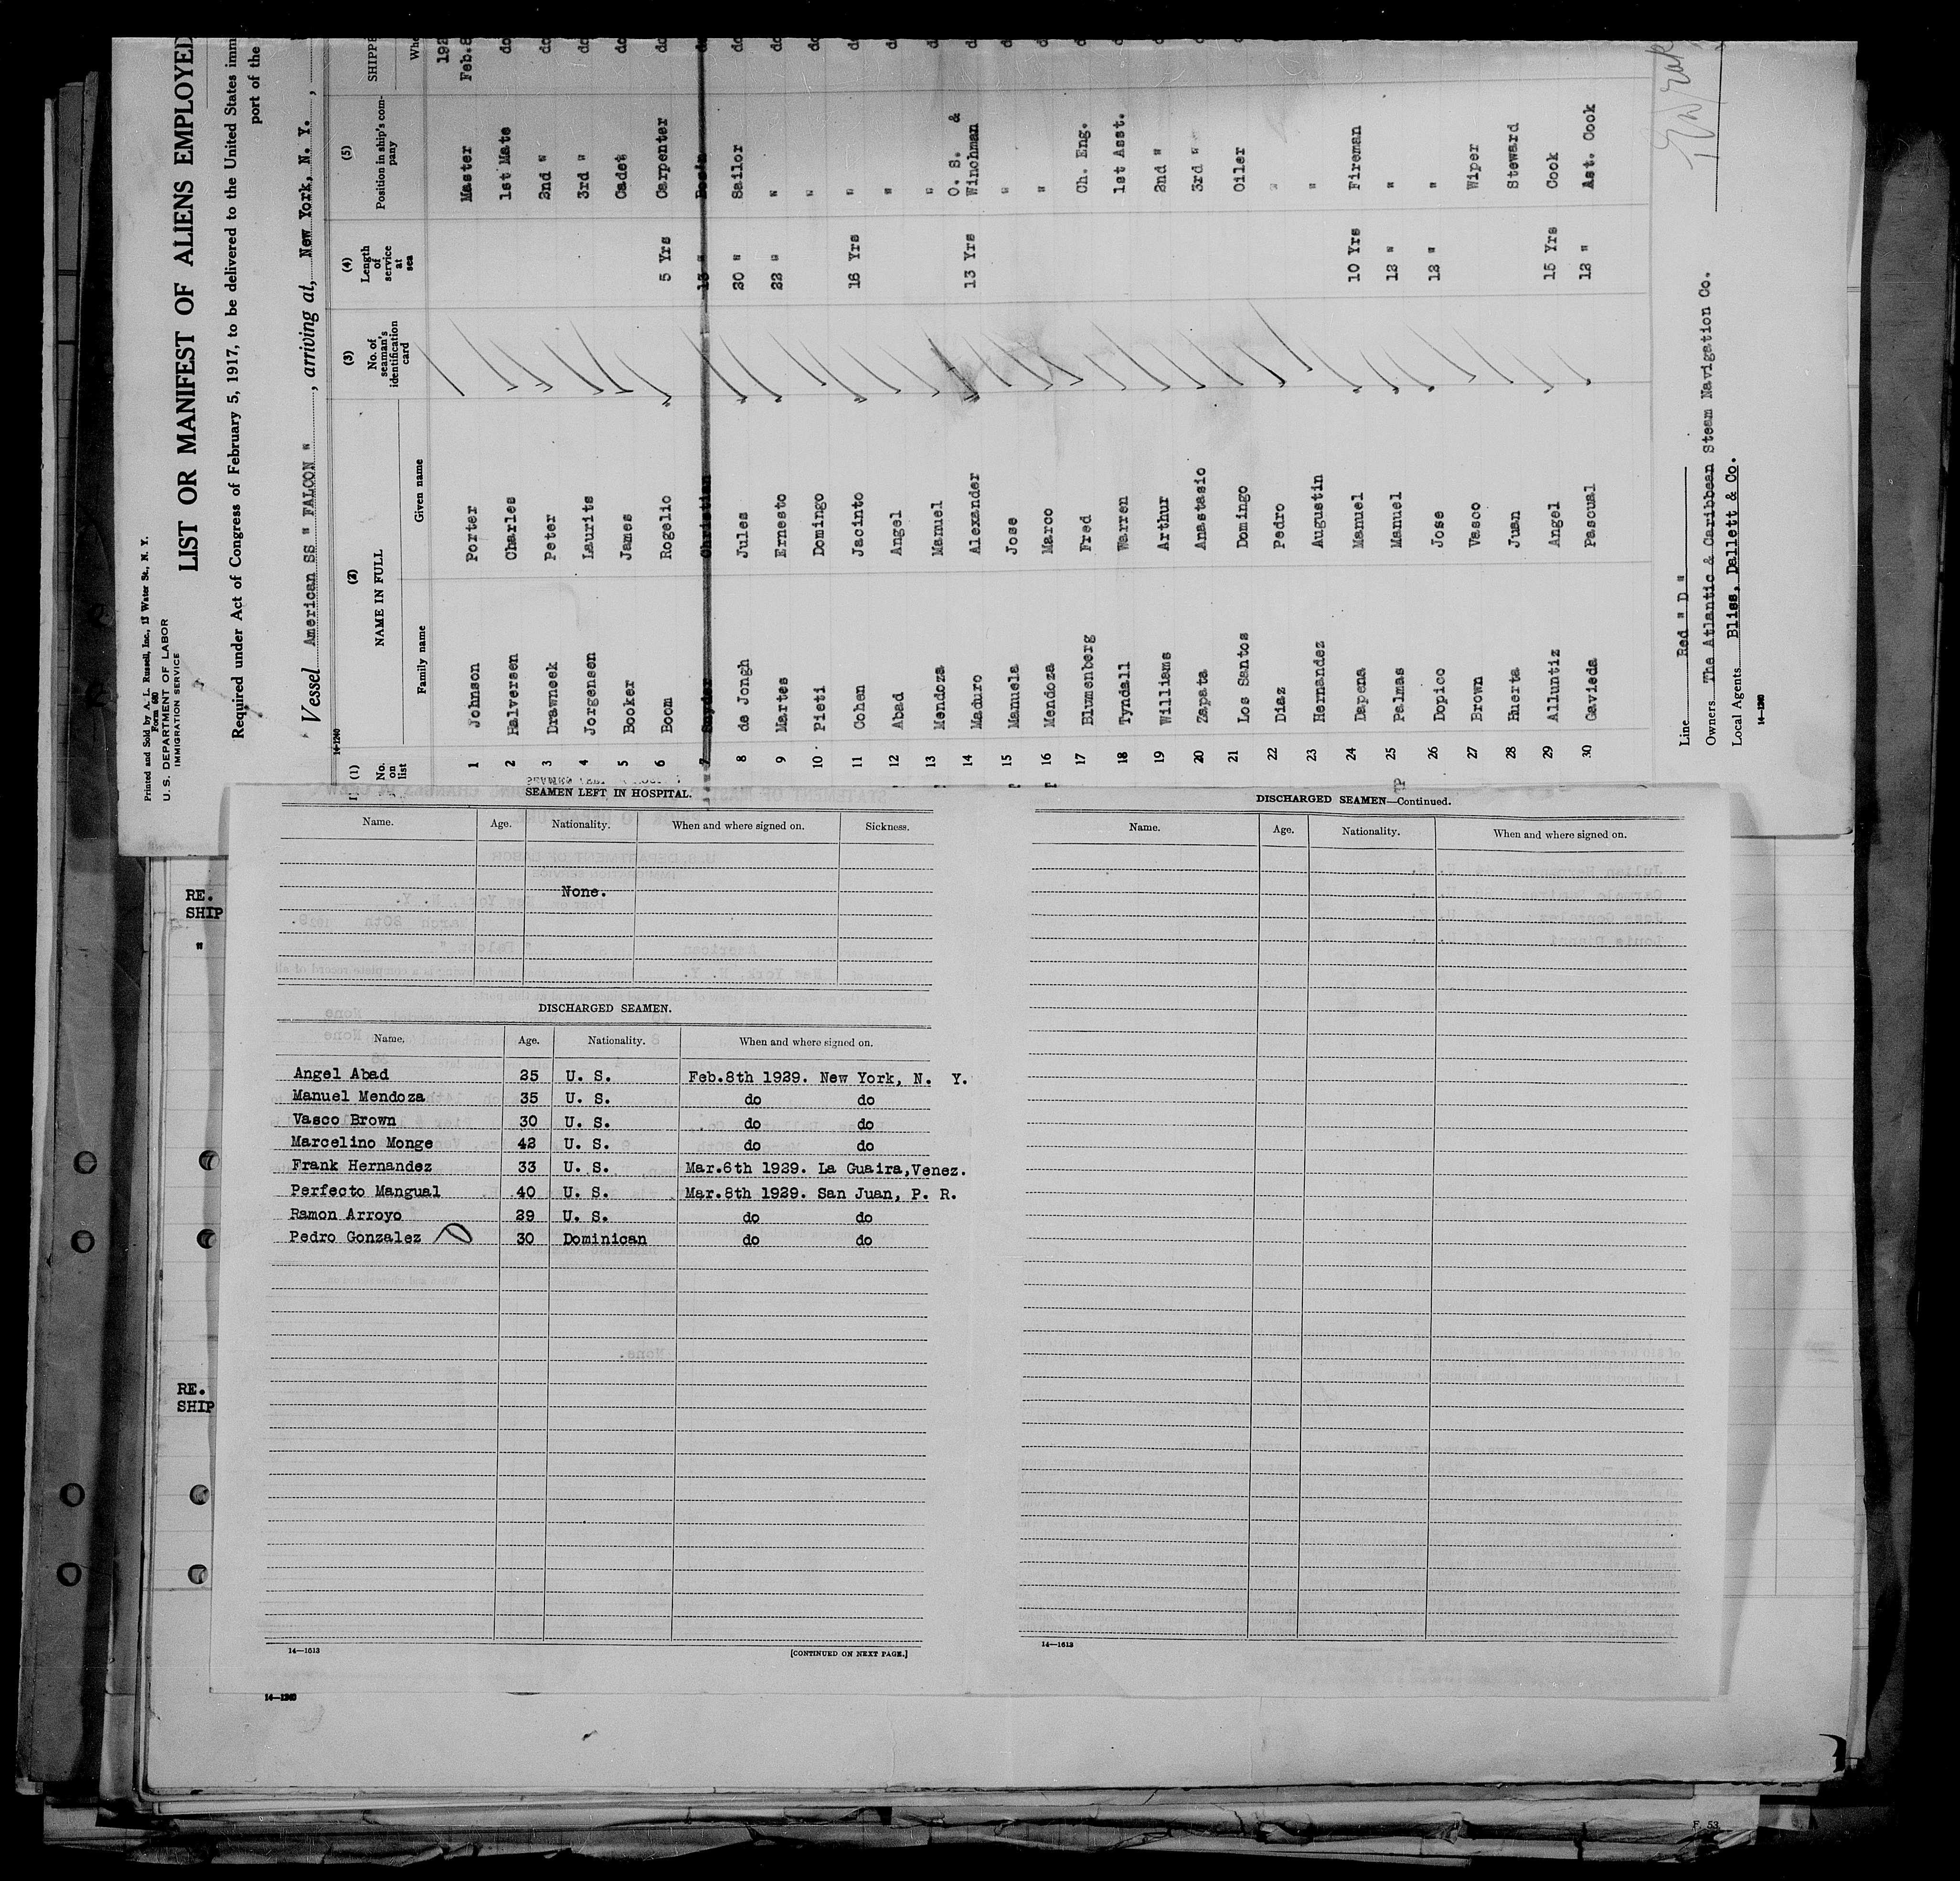 Printed and Sold by A. L. Russell, Inc., 13 Water St., N. Y.
Form 680
U. S. DEPARTMENT OF LABOR
IMMIGRATION SERVICE
LIST OR MANIFEST OF ALIENS EMPLOYED
Required under Act of Congress of February 5, 1917, to be delivered to the United States imm
port of the
Vessel American SS " FALCON ", arriving at, New York, N. Y. ,
14-1240
(1) (2) (3) (4) (5)
No. on list NAME IN FULL No. of seaman's identification card Length of service at sea Position in ship's company SHIPPE
Family name Given name Whe
192
1 Johnson Porter Master Feb.8
2 Halversen Charles 1st Mate do
3 Drawneek Peter 2nd " do
4 Jorgensen Laurits 3rd " do
5 Booker James Cadet do
6 Boom Rogelio 5 Yrs Carpenter do
7 Snyder Christian 13 " Bos'n do
8 de Jongh Jules 20 " Sailor do
9 Martes Ernesto 22 " " do
10 Pieti Domingo " do
11 Cohen Jacinto 16 Yrs " do
12 Abad Angel " d
13 Mendoza Manuel " d
14 Maduro Alexander 13 Yrs O. S. & Winchman d
15 Manuela Jose " d
16 Mendoza Marco " d
17 Blumenberg Fred Ch. Eng. d
18 Tyndall Warren 1st Asst. d
19 Williams Arthur 2nd " d
20 Zapata Anastasio 3rd " d
21 Los Santos Domingo Oiler d
22 Diaz Pedro "
23 Hernandez Augustin "
24 Dapena Manuel 10 Yrs Fireman
25 Palmas Manuel 12 " "
26 Dopico Jose 12 " "
27 Brown Vasco Wiper
28 Huerta Juan Steward
29 Alluntiz Angel 15 Yrs Cook
30 Gavieda Pascual 12 " Ast. Cook
Line Red " D "
Owners The Atlantic & Caribbean Steam Navigation Co.
Local Agents Bliss, Dallett & Co.
14-1240
RE.
SHIP
"
RE.
SHIP
SEAMEN LEFT IN HOSPITAL.
Name. Age. Nationality. When and where signed on. Sickness.
None.
DISCHARGED SEAMEN.
Name. Age. Nationality. When and where signed on.
Angel Abad 25 U. S. Feb.8th 1929. New York, N. Y.
Manuel Mendoza 35 U. S. do do
Vasco Brown 30 U. S. do do
Marcelino Monge 42 U. S. do do
Frank Hernandez 33 U. S. Mar.6th 1929. La Guaira,Venez.
Perfecto Mangual 40 U. S. Mar.8th 1929. San Juan, P. R.
Ramon Arroyo 29 U. S. do do
Pedro Gonzalez 30 Dominican do do
14—1613
[CONTINUED ON NEXT PAGE.]
DISCHARGED SEAMEN—Continued.
Name. Age. Nationality. When and where signed on.
14—1613
14—1240
F 53